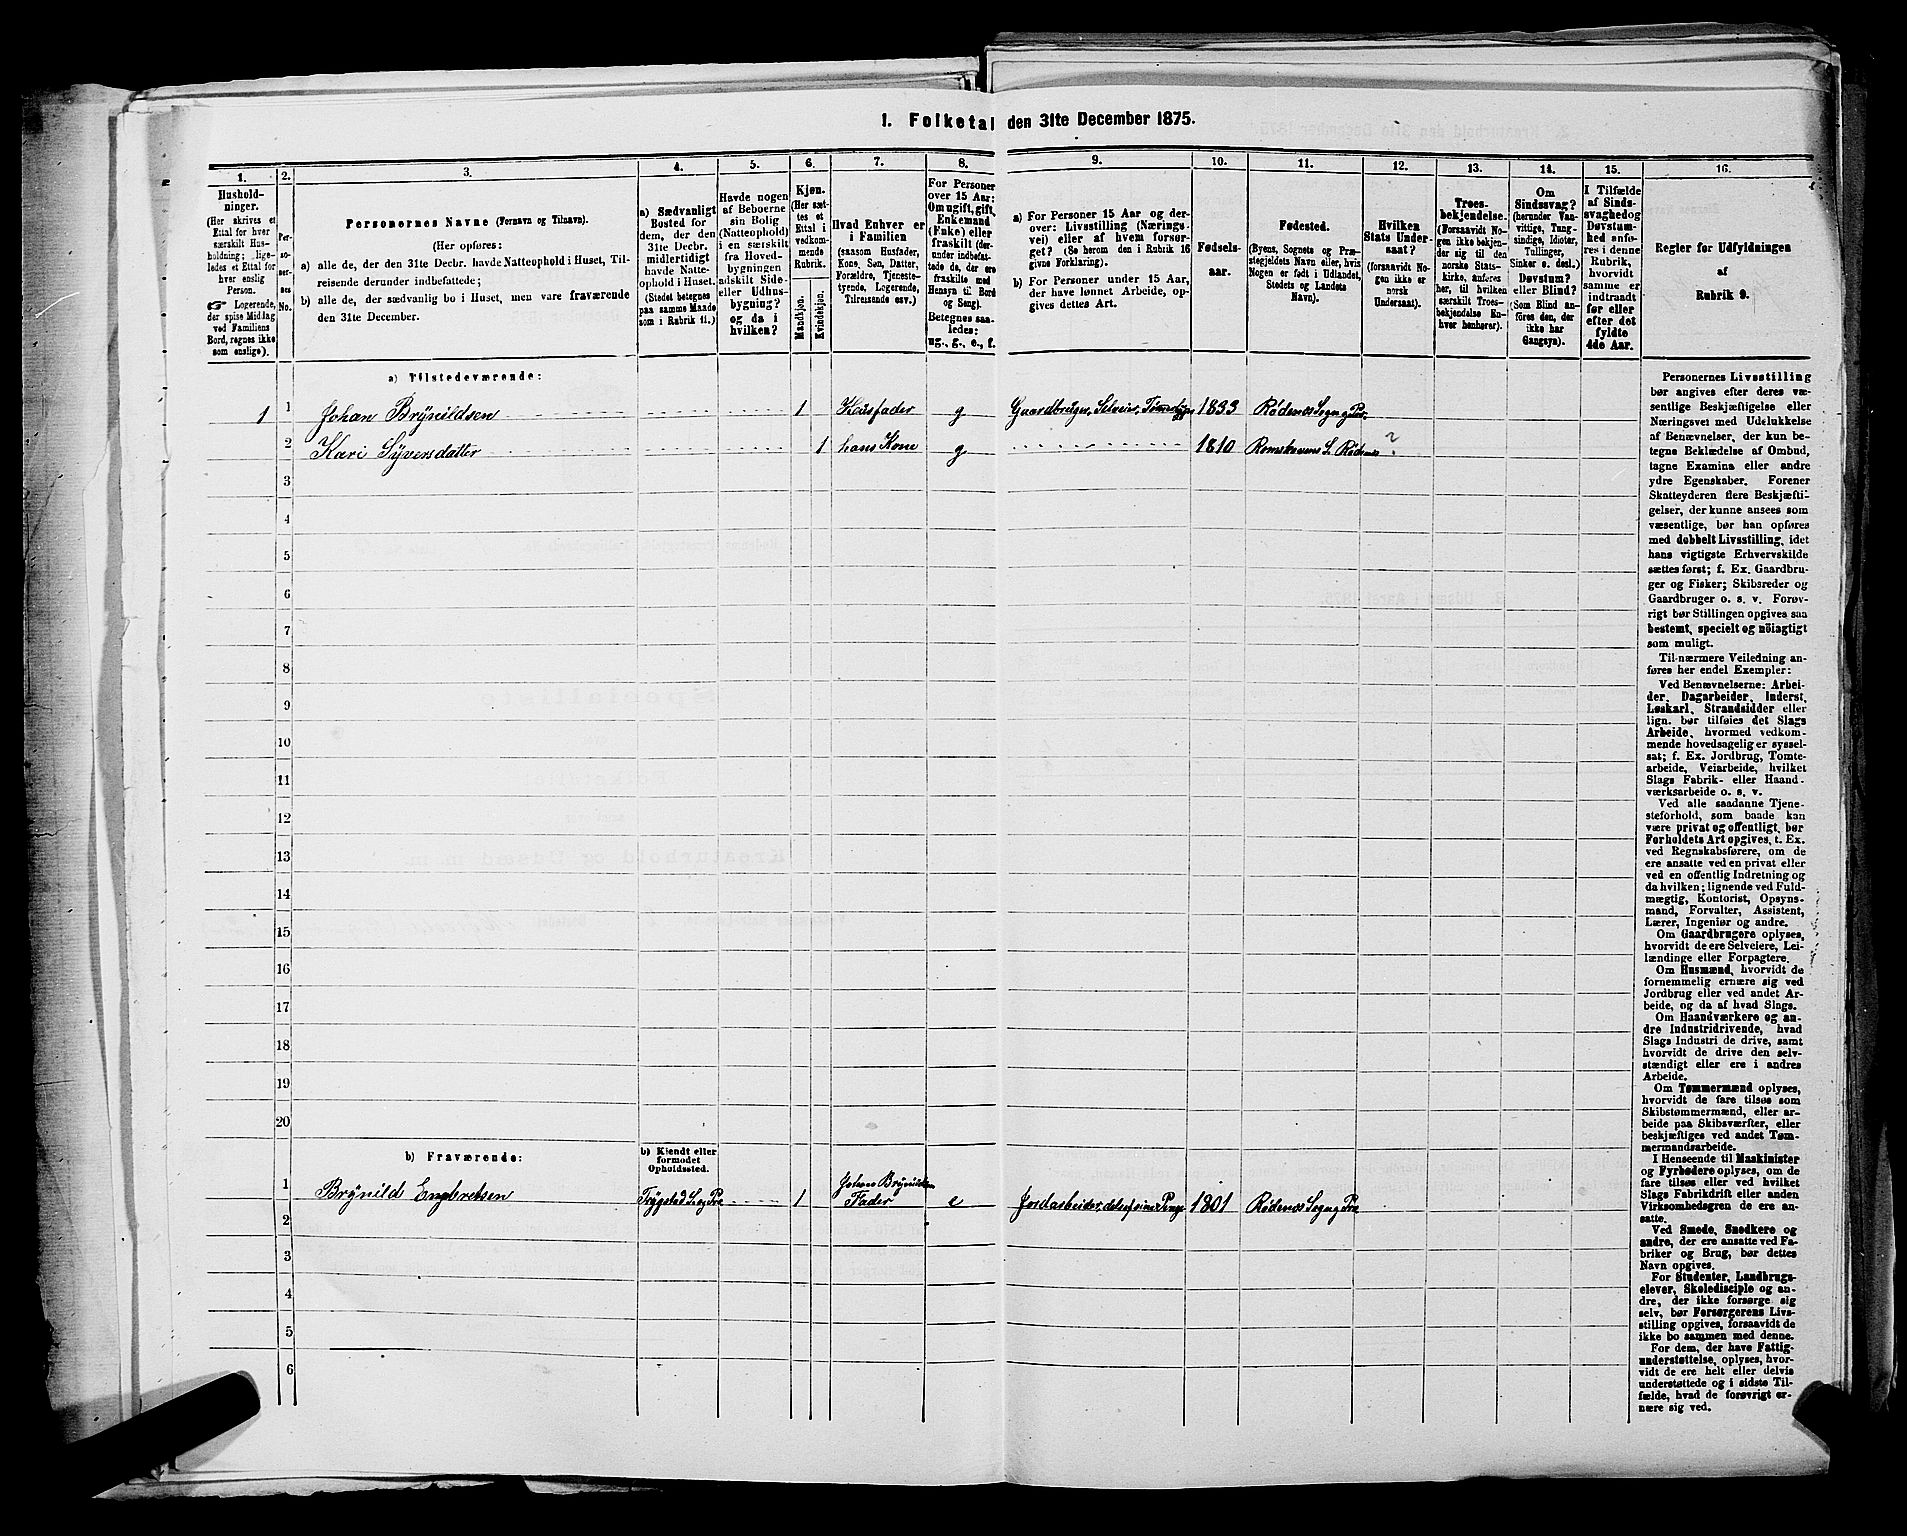 1. Folketal den 31te December 1875.
1.
Hushold-
ninger.
(Her skrives et
Ettal for hver
særskilt Hus-
holdning; lige-
ledes et Ettal for
hver enslig
Person.
☞ Logerende,
der spise Middag
ved Familiens
Bord, regnes ikke
som enslige).
2.
Per-
so-
ner-
nes
No.
3.
Personernes Navne (Fornavn og Tilnavn).
(Her opføres:
a) alle de, der den 31te Decbr. havde Natteophold i Huset, Til-
reisende derunder indbefattede;
b) alle de, der sædvanlig bo i Huset, men vare fraværende
den 31te December.
4.
a) Sædvanligt
Bosted for
dem, der den
31te Decbr.
midlertidigt
havde Natte-
ophold i Huset.
(Stedet betegnes
paa samme Maade
som i Rubrik 11.)
5.
Havde nogen
af Beboerne
sin Bolig
(Natteophold)
i en særskilt
fra Hoved-
bygningen
adskilt Side-
eller Udhus-
bygning?
og da i
hvilken?
6.
Kjøn.
(Her sæt-
tes et
Ettal i
vedkom-
mende
Rubrik.
Mandkjøn.
Kvindekjøn.
7.
Hvad Enhver er
i Familien
(saasom Husfader,
Kone, Søn, Datter,
Forældre, Tjeneste-
tyende, Logerende,
Tilreisende osv.)
8.
For Personer
over 15 Aar:
Om ugift, gift,
Enkemand
(Enke) eller
fraskilt (der-
under indbefat-
tede de, der ere
fraskilte med
Hensyn til Bord
og Seng).
Betegnes saa-
ledes:
ug., g., e., f.
9.
a) For Personer 15 Aar og der-
over: Livsstilling (Nærings-
vei) eller af hvem forsør-
get? (Se herom den i Rubrik 16
givne Forklaring).
b) For Personer under 15 Aar,
der have lønnet Arbeide, op-
gives dettes Art.
10.
Fødsels-
aar.
11.
Fødested.
(Byens, Sognets og Præ-
stegjeldets Navn eller, hvis
Nogen er født i Udlandet,
Stedets og Landets
Navn).
12.
Hvilken
Stats Under-
saat?
(forsaavidt No-
gen ikke er
norsk
Undersaat).
13.
Troes-
bekjendelse.
(Forsaavidt No-
gen ikke bekjen-
der sig til den
norske Stats-
kirke, anføres
her, til hvilken
særskilt Troes-
bekjendelse En-
hver henhører).
14.
Om
Sindssvag?
(herunder Van-
vittige, Tung-
sindige, Idioter,
Tullinger,
Sinker o. desl.)
Døvstum?
eller Blind?
(Som Blind an-
føres den, der
ikke har
Gangsyn).
15.
I Tilfælde
af Sinds-
svaghed og
Døvstum-
hed anfø-
res i denne
Rubrik,
hvorvidt
samme er
indtraadt
før eller
efter det
fyldte
4de Aar.
16.
Regler for Udfyldningen
af
Rubrik 9.
a) Tilstedeværende:
1 1 Johan Brynildsen 1 Husfader g Gaardbruger, Selveier, 1833 Rødenes Sogn og Pr.
2 Kari Syversdatter 1 hans Kone g 1810 Romskovens S. Rødenes ?
3
4
5
6
7
8
9
10
11
12
13
14
15
16
17
18
19
20
b) Fraværende:
b) Kjendt eller
formodet
Opholdssted.
1 Brynild Engbretsen Trygstad S. og Pr. 1 Johan Brynildsen
Fader e Jordarbeider, 1801 Rødenes Sogn og Pr.
2
3
4
5
6
Personernes Livsstilling
bør angives efter deres væ-
sentlige Beskjæftigelse eller
Næringsvei med Udelukkelse
af Benævnelser, der kun be-
tegne Beklædelse af Ombud,
tagne Examina eller andre
ydre Egenskaber. Forener
Skatteyderen flere Beskjæfti-
gelser, der kunne ansees som
væsentlige, bør han opføres
med dobbelt Livsstilling, idet
hans vigtigste Erhvervskilde
sættes først; f. Ex. Gaardbru-
ger og Fisker; Skibsreder og
Gaardbruger o. s. v. Forøv-
rigt bør Stillingen opgives saa
bestemt, specielt og nöiagtigt
som muligt.
Til nærmere Veiledning an-
føres her endel Exempler:
Ved Benævnelserne: Arbei-
der, Dagarbeider, Inderst,
Løskarl, Strandsidder eller
lign. bør tilføies det Slags
Arbeide, hvormed vedkom-
mende hovedsagelig er syssel-
sat; f. Ex. Jordbrug, Tomte-
arbeide, Veiarbeide, hvilket
Slags Fabrik- eller Haand-
værksarbeide o. s. v.
Ved alle saadanne Tjene-
steforhold, som baade kan
være privat og offentligt, bør
Forholdets Art opgives, t. Ex.
ved Regnskabsførere, om de
ere ansatte ved en privat eller
ved en offentlig Indretning og
da hvilken; lignende ved Fuld-
mægtig, Kontorist, Opsyns-
mand, Forvalter, Assistent,
Lærer, Ingeniør og andre.
Om Gaardbrugere oplyses,
hvorvidt de ere Selveiere, Lei-
lændinge eller Forpagtere.
Om Husmænd, hvorvidt de
fornemmelig ernære sig ved
Jordbrug eller ved andet Ar-
beide, og da af hvad Slags.
Om Haandværkere og an-
dre Industridrivende, hvad
Slags Industri de drive, samt
hvorvidt de drive den selv-
stændigt eller ere i andres
Arbeide.
Om Tømmermænd oplyses,
hvorvidt de fare tilsøs som
Skibstømmermænd, eller ar-
beide paa Skibsværfter, eller
beskjæftiges ved andet Tøm-
mermandsarbeide.
I Henseende til Maskinister
og Fyrbødere oplyses, om de
fare tilsøs eller ved hvilket
Slags Fabrikdrift eller anden
Virksomhedsgren de ere an-
satte.
Ved Smede, Snedkere og
andre, der ere ansatte ved Fa-
briker og Brug, bør dettes
Navn opgives.
For Studenter, Landbrugs-
elever, Skoledisciple og an-
dre, der ikke forsørge sig
selv, bør Forsørgerens Livs-
stilling opgives, forsaavidt de
ikke bo sammen med denne.
For dem, der have Fattig-
understøttelse, oplyses, hvor-
vidt de ere helt eller delvis
understøttede og i sidste Til-
fælde, hvad de forøvrigt er-
nære sig ved.